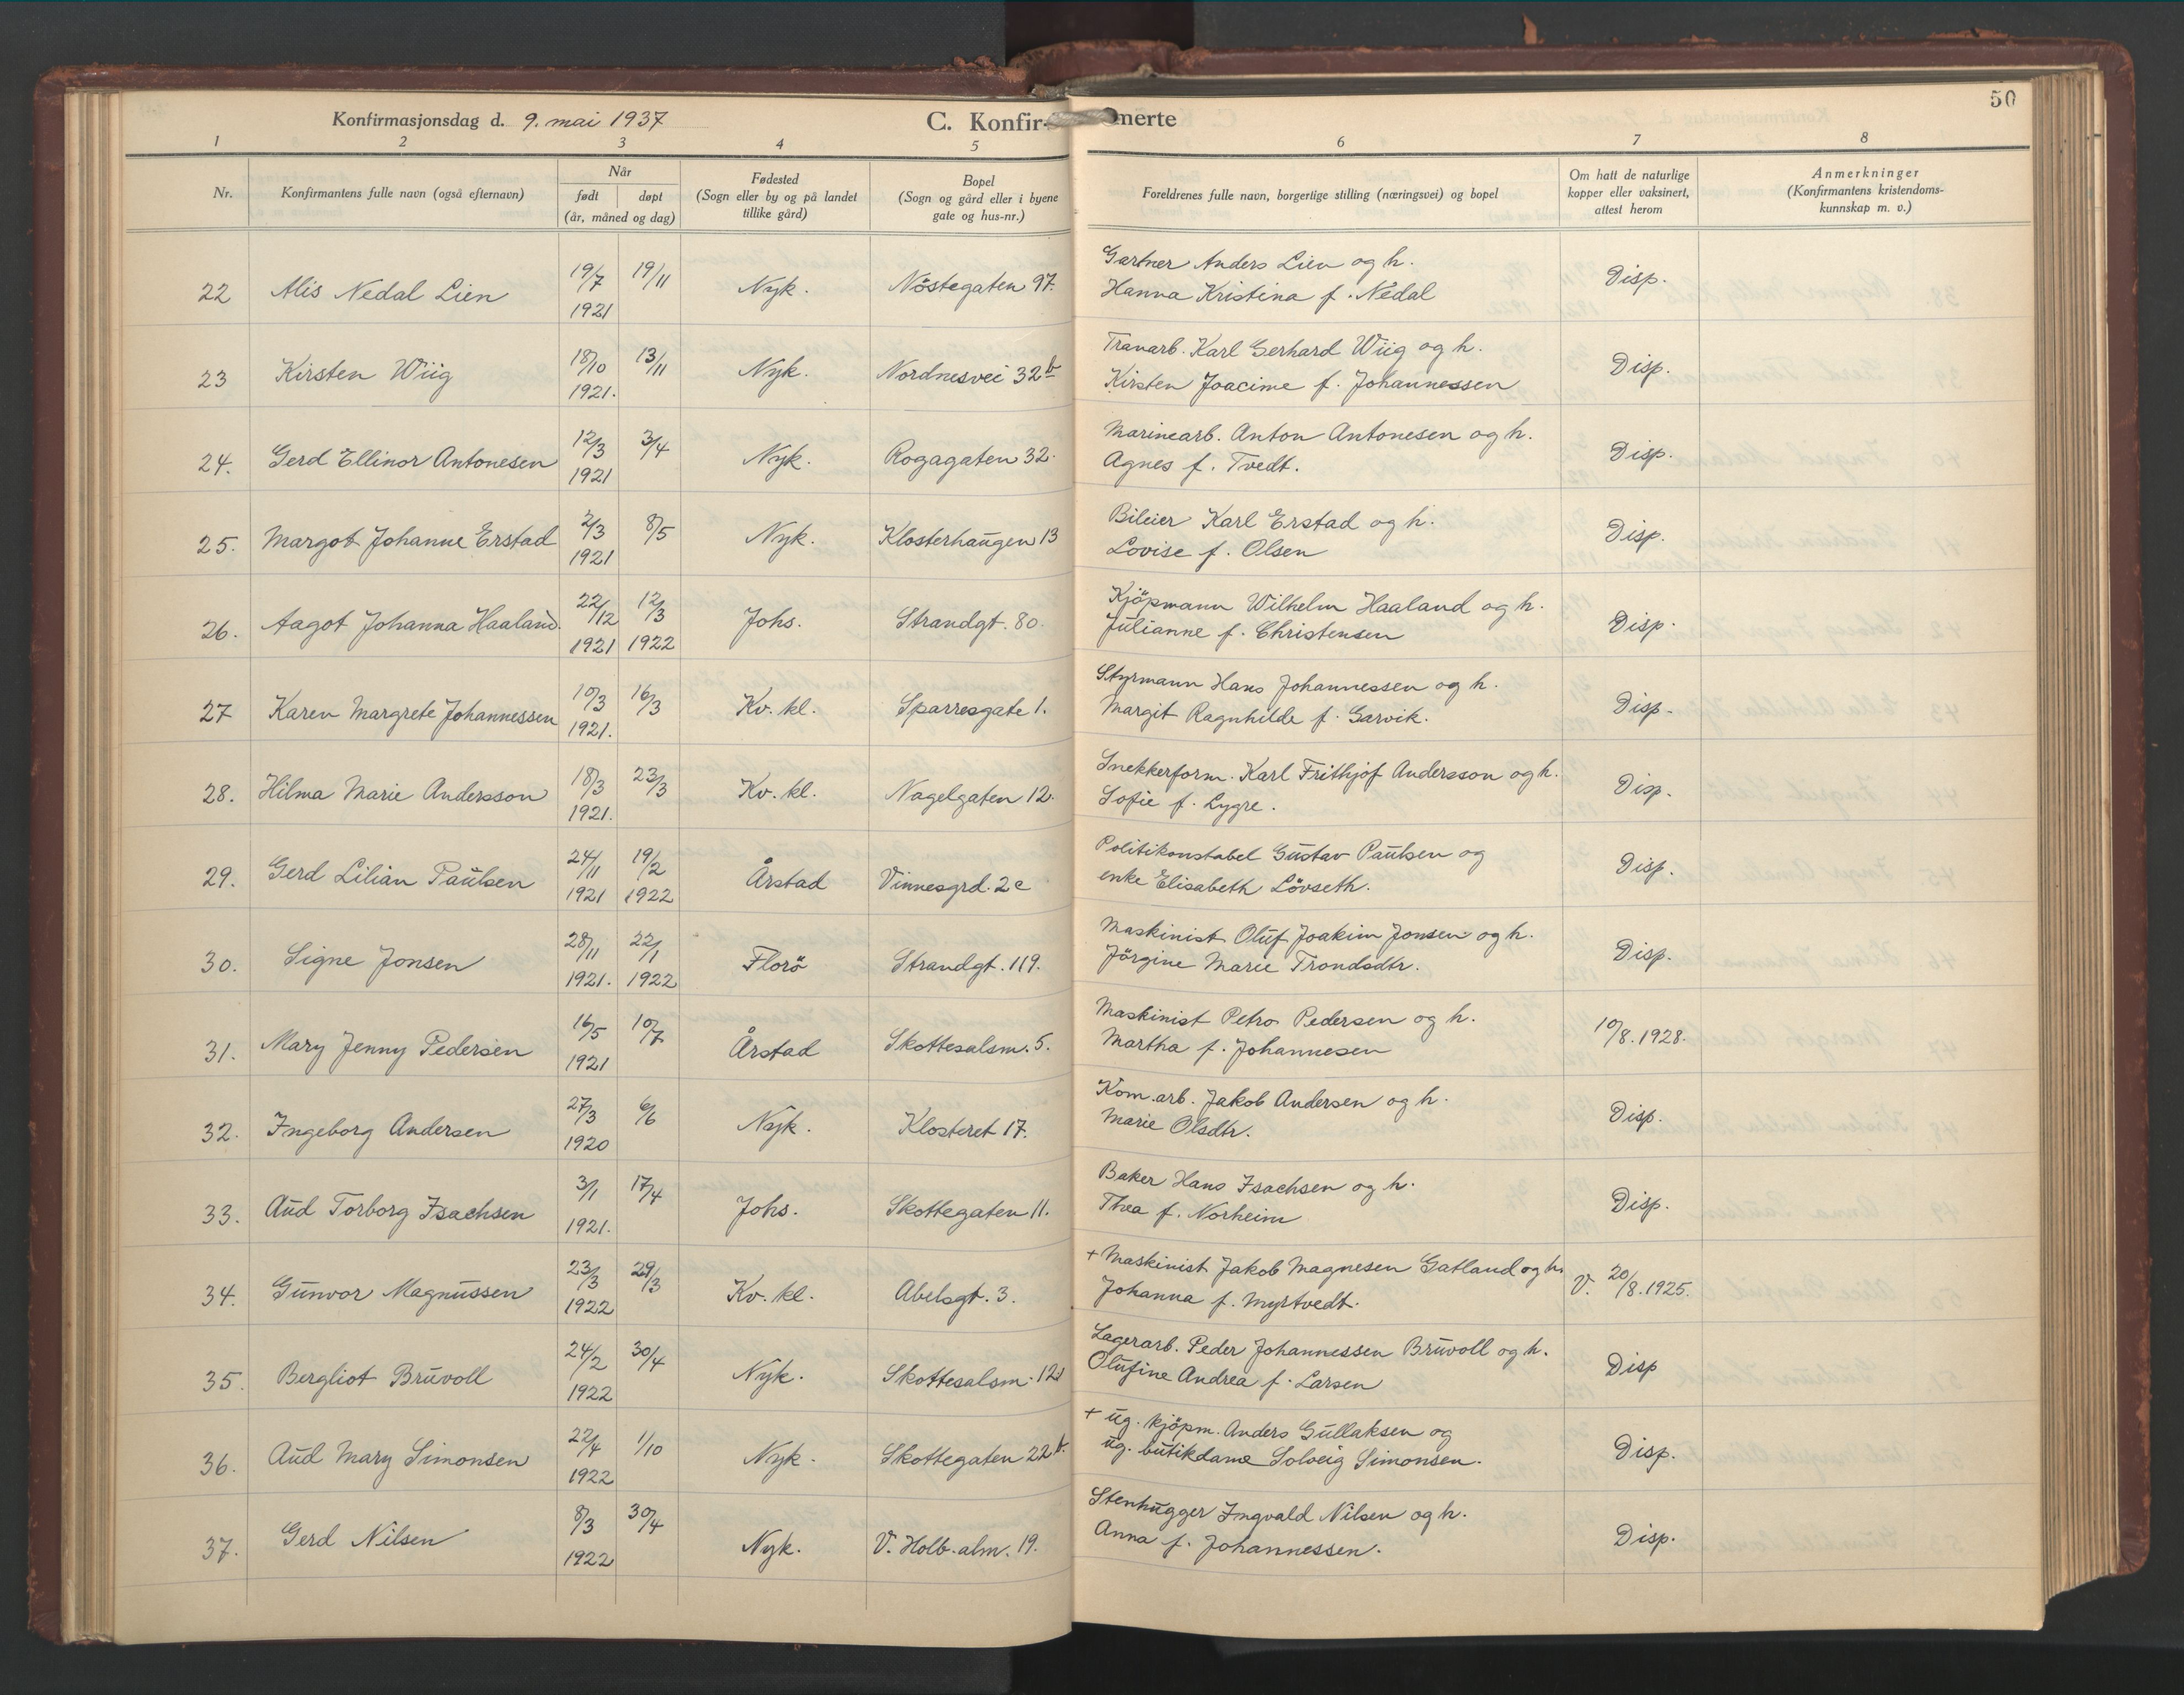 50
Konfirmasjonsdag d. 9. mai 1937
C. Konfirmerte
1 2 3 4 5 6 7 8
Nr.
Konfirmantens fulle navn (også efternavn)
Når
født døpt
(år, måned og dag)
Fødested
(Sogn eller by og på landet
tillike gård)
Bopel
(Sogn og gård eller i byene
gate og hus-nr.)
Foreldrenes fulle navn, borgerlige stilling (næringsvei) og bopel
Om hatt de naturlige
kopper eller vaksinert,
attest herom
Anmerkninger
(Konfirmantens kristendoms-
kunnskap m. v.)
22 Alis Nedal Lien 19/7 1921 19/11 Nyk. Nöstegaten 97.
Gartner Anders Lien og h.
Hanna Kristina f. Nedal
Disp.
23 Kirsten Wiig 18/10 1921. 13/11 Nyk. Nordnesvei 32 b
Tranarb. Karl Gerhard Wiig og h.
Kirsten Joacime f. Johannessen
Disp.
24. Gerd Ellinor Antonesen 12/3 1921 3/4 Nyk. Rogagaten 32.
Marinearb. Anton Antonesen og h.
Agnes f. Tvedt.
Disp.
25. Margot Johanne Erstad 2/3 1921 8/5 Nyk. Klosterhaugen 13
Bileier Karl Erstad og h.
Lovise f. Olsen
Disp.
26. Aagot Johanna Haaland. 22/12 1921 12/3 1922 Johs. Strandgt. 80.
Kjöpmann Wilhelm Haaland og h.
Julianne f. Christensen
Disp.
27 Karen Margrete Johannessen 10/3 1921. 16/3 Kv. kl. Sparresgate 1.
Styrmann Hans Johannessen og h.
Margit Ragnhilde f. Garvik.
Disp.
28. Hilma Marie Andersson 18/3 1921. 23/3 Kv. kl. Nagelgaten 12.
Snekkerform. Karl Frithjof Andersson og h.
Sofie f. Lygre.
Disp.
29. Gerd Lilian Paulsen 24/11 1921 19/2 1922 Årstad Vinnesgrd. 2 c
Politikonstabel Gustav Paulsen og
enke Elisabeth Lövseth.
Disp.
30. Signe Jonsen 28/11 1921. 22/1 1922 Florö Strandgt. 119.
Maskinist Oluf Joakim Jonsen og h.
Jörgine Marie Trondsdtr.
Disp.
31. Mary Jenny Pedersen 16/5 1921 10/7 Årstad Skottesalsm. 5.
Maskinist Petro Pedersen og h.
Martha f. Johannesen
10/8. 1928.
32. Ingeborg Andersen 27/3 1920 6/6 Nyk. Klosteret 17.
Kom. arb. Jakob Andersen og h.
Marie Olsdtr.
Disp.
33. Aud Torborg Isachsen 3/1 1921. 17/4 Johs. Skottegaten 11.
Baker Hans Isachsen og h.
Thea f. Norheim
Disp.
34. Gunvor Magnussen 23/3 1922 29/3 Kv. kl. Abelsgt. 3.
+ Maskinist Jakob Magnesen Gatland og h.
Johanna f. Myrtvedt.
V. 20/8. 1925.
35. Bergliot Bruvoll 24/2 1922 30/4 Nyk. Skottesalsm. 12
Lagerarb. Peder Johannessen Bruvoll og h.
Olufine Andrea f. Larsen
Disp
36. Aud Mary Simonsen 22/4 1922 1/10 Nyk. Skottegaten 22 b.
+ ug. kjöpm. Anders Gullaksen og
ug. butikdame Solveig Simonsen.
Disp.
37. Gerd Nilsen 8/3 1922 30/4 Nyk. V. Holb. alm. 19.
Stenhugger Ingvald Nilsen og h.
Anna f. Johannessen.
Disp.